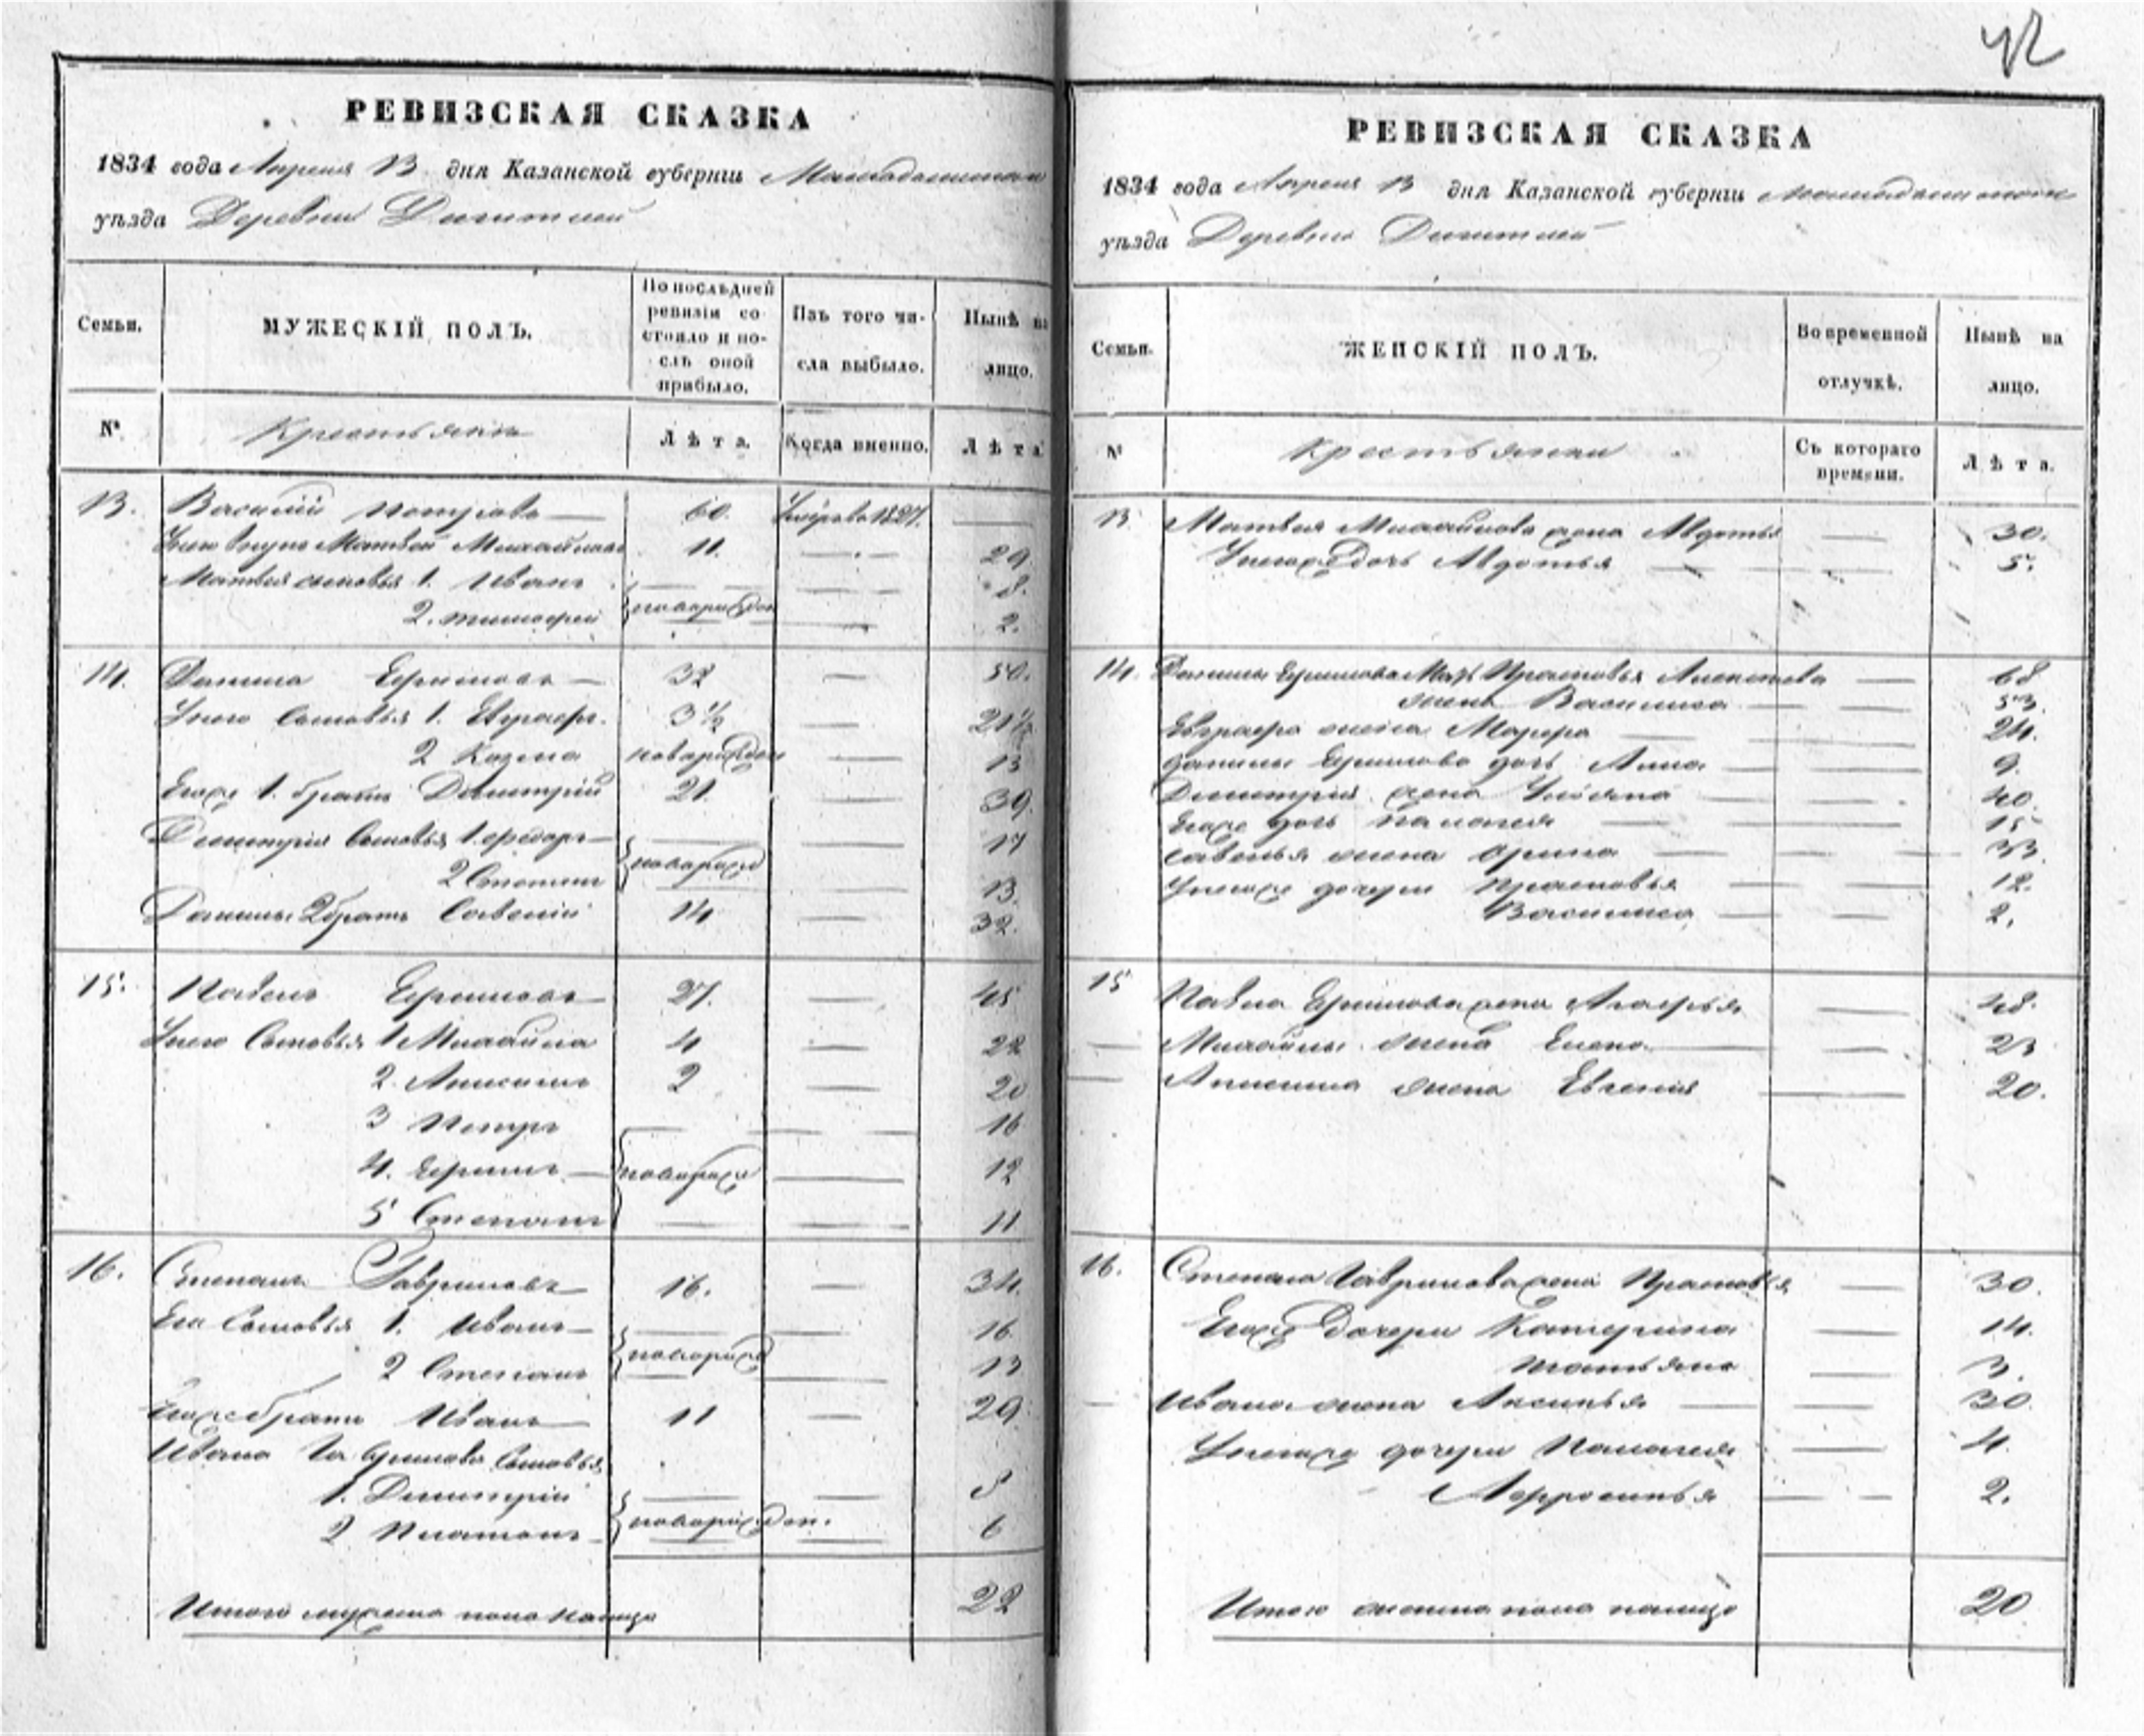 42
РЕВИЗСКАЯ СКАЗКА
1834 года Апреля 13 дня Казанской губерніи
уѣзда Деревни
Семьи.
МУЖЕСКІЙ ПОЛЪ.
По послѣдней ревизіи состояло и послѣ оной прибыло.
Изъ того числа выбыло.
Нынѣ на лицо.
№
Крестьяне
Лѣта.
Когда именно.
Лѣта
13. Василий Петровъ 60. Умеръ въ 1827.
Унего внукъ Матвей Михайловъ 11. 29
Матвея сыновья 1. Иванъ 8.
2. Тимофей новорожден 2.
14. Данила Ефимовъ 32 50.
Унего Сыновья 1. Евграфъ 3½ 21½
2 Козма новорожден 13
Егоже 1. братъ Димитрій 21. 39.
Димитрия Сыновья 1. Федоръ 17
2 Степанъ новорожд 13.
Данилы 2 братъ Савелій 14 32.
15. Павелъ Ефимовъ 27. 45
Унего Сыновья 1 Михайла 4 22
2. Анисимъ 2 20
3 Петръ 16
4. Ефимъ новорожд 12
5 Степанъ 11
16. Степанъ Гавриловъ 16. 34.
Его Сыновья 1. Иванъ 16
2 Степанъ новорожд 13
Егоже братъ Иванъ 11 29
Ивана Гаврилова Сыновья
1. Димитрій 8
2 Платонъ новорожден. 6
Итого мужеска пола налицо 22
РЕВИЗСКАЯ СКАЗКА
1834 года Апреля 13 дня Казанской губерніи
уѣзда Деревни
Семьи.
ЖЕНСКІЙ ПОЛЪ.
Во временной отлучкѣ.
Нынѣ на лицо.
№
Крестьянки
Съ котораго времени.
Лѣта.
13. Матвея Михайлова жена Авдотья 30.
Унегоже Дочь Авдотья 5.
14. Данилы Ефимова Мать Прасковья Алексеева 68
жена Василиса 53.
Евграфа жена Марфа 24.
Данилы Ефимова дочь Анна 9.
Димитрия жена Ульяна 40.
Егоже дочь Палагея 15
Савелья жена Орина 33
Унегоже дочери Прасковья 12.
Василиса 2.
15 Павла Ефимова жена Агафья 48.
Михайлы жена Елена 23
Анисима жена Евгения 20.
16. Степана Гаврилова жена Прасковья 30.
Егоже Дочери Катерина 14.
Татьяна 3.
Ивана жена Аксинья 30
Унегоже дочери Палагея 4.
Афросинья 2.
Итого женска пола налицо 20